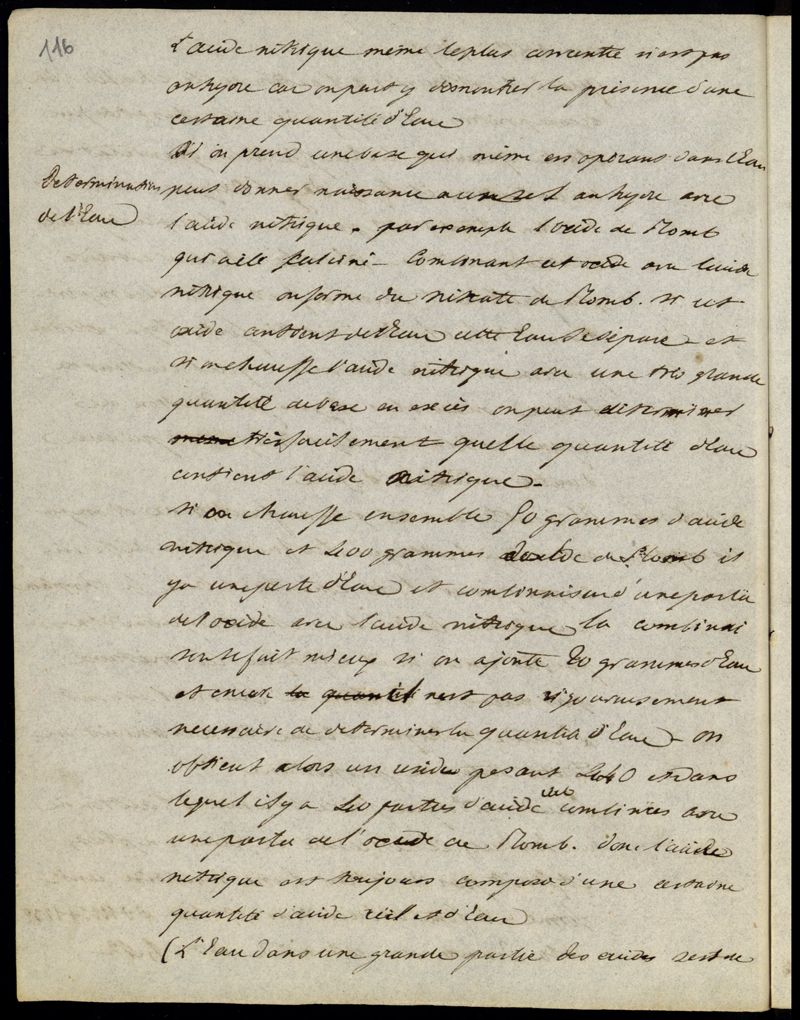 116
L'acide nitrique même le plus concentré n'est pas
anhydre car on peut y demontrer la présence d'une
certaine quantité d'Eau
Si on prend une base qui même en opérant dans l'Eau
Determination
de l'Eau
peut donner naissance a un sel anhydre avec
l'acide nitrique. par exemple l'oxide de Plomb
qui a été calciné - Combinant cet oxide avec l'acide
nitrique on forme du nitrate de Plomb. si cet
acide contient de l'Eau cette Eau se sépare - et
si on chauffe l'acide nitrique avec une très grande
quantité de base en excès on peut déterminer
très facilement quelle quantité d'Eau
contient l'acide nitrique -
si on chauffe ensemble 50 grammes d'acide
nitrique et 400 grammes d'oxide de Plomb il
y a une perte d'Eau et combinaison d'une partie
de l'oxide avec l'acide nitrique la combinai
son se fait mieux si on ajoute 20 grammes d'Eau
et encore la quantité n'est pas rigoureusement
necessaire de determiner la quantité d'Eau - on
obtient alors un residu pesant 440 et dans
lequel il y a 40 parties d'acide réel combinées avec
une partie de l'oxide de Plomb. donc l'acide
nitrique est toujours composé d'une certaine
quantité d'acide réel et d'Eau
(L'Eau dans une grande partie des acides sert de